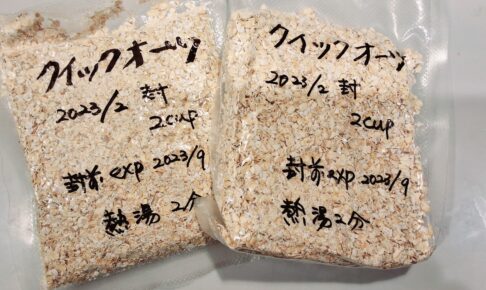 クイックオーツ
2023/2 封
2cup
封前 exp 2023/9
熱湯2分
クイックオーツ
2023/2 封
2cup
封前 exp 2023/9
熱湯2分